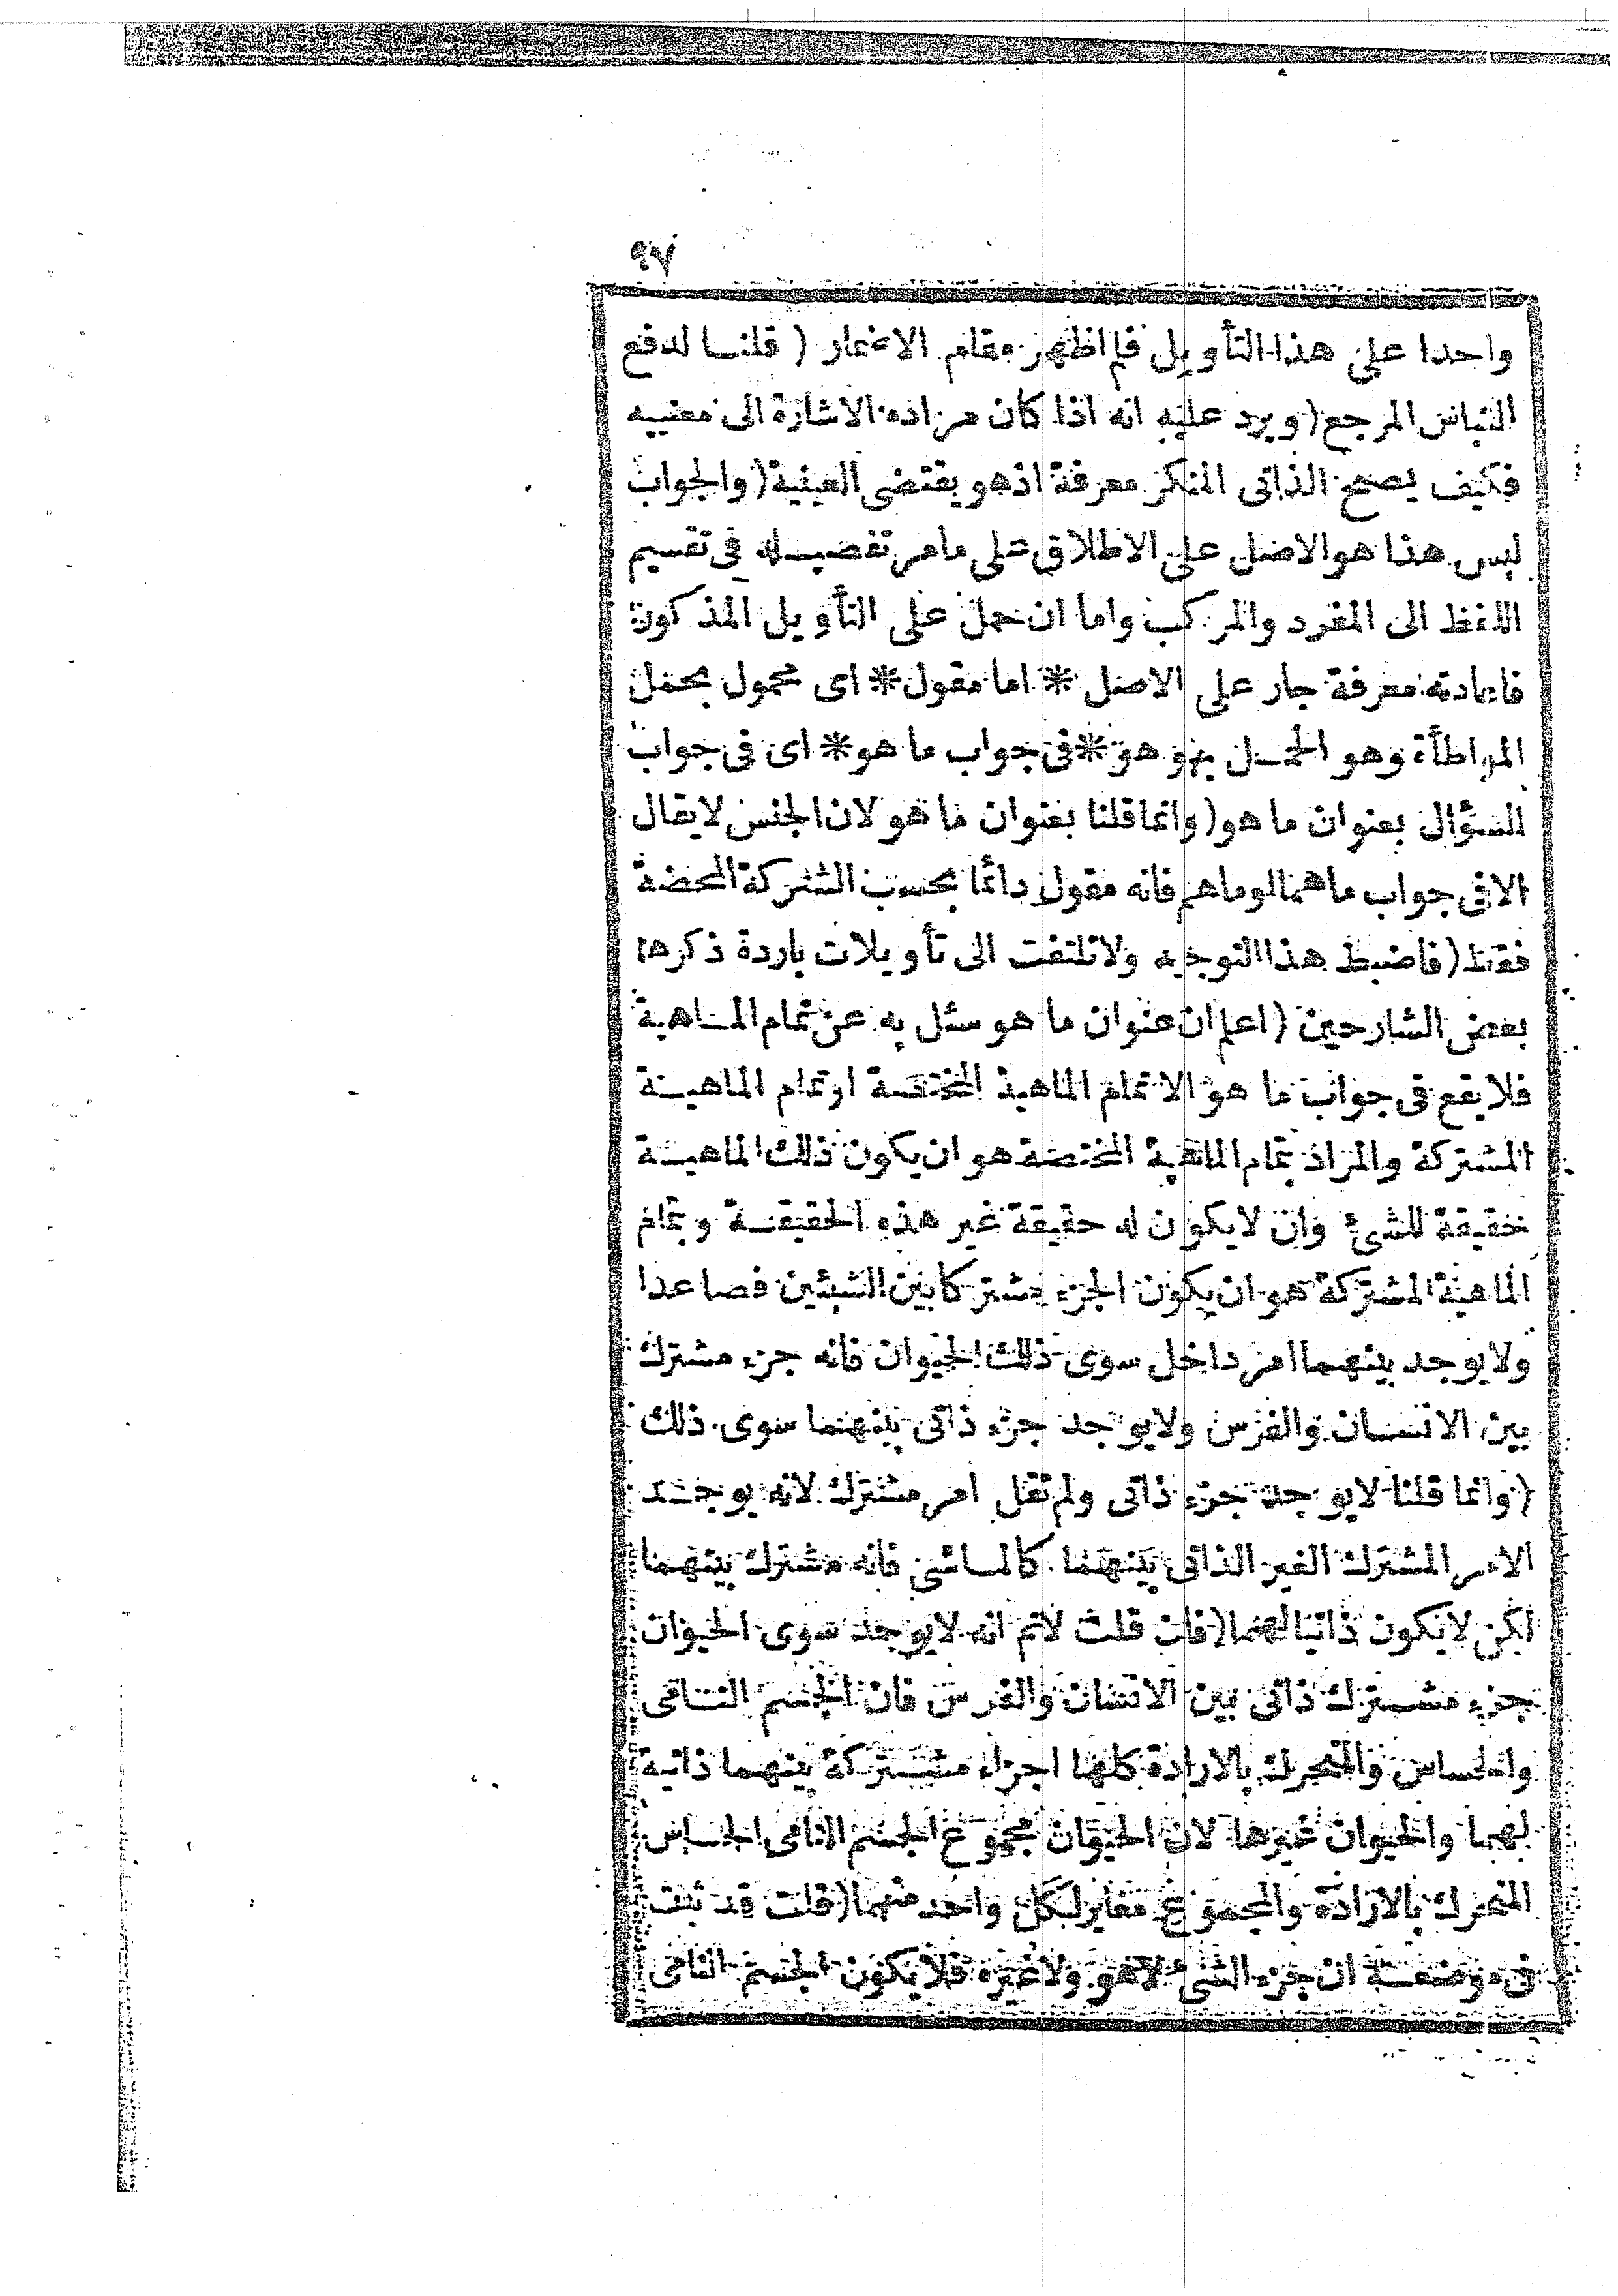 ٩٧
واحدا على هذا التأويل فلم اظهر مقام الاضمار ( قلنا لدفع
التباس المرجع ( ويرد عليه انه اذا كان مراده الاشارة الى معنييه
فكيف يصح الذاتى المنكر معرفة اذ هو يقتضى العينية ( والجواب
ليس هذا هو الاصل على الاطلاق على ما مر تفصيله فى تقسيم
اللفظ الى المفرد والمركب واما ان حمل على التأويل المذكور
فاعادته معرفة جار على الاصل * اما مقول * اى محمول بحمل
المواطأة وهو الحمل بهو هو * فى جواب ما هو * اى فى جواب
السؤال بعنوان ما هو ( وانما قلنا بعنوان ما هو لان الجنس لا يقال
الا فى جواب ماهما او ماهم فانه مقول دائما بحسب الشركة المحضة
فقط ( فاضبط هذا التوجيه ولا تلتفت الى تأويلات باردة ذكرها
بعض الشارحين ( اعلم ان عنوان ما هو سئل به عن تمام الماهية
فلا يقع فى جواب ما هو الا تمام الماهية المختصة او تمام الماهية
المشتركة والمراد بتمام الماهية المختصة هو ان يكون ذلك الماهية
حقيقة للشئ وان لا يكون له حقيقة غير هذه الحقيقة وبتمام
الماهية المشتركة هو ان يكون الجزء مشتركا بين الشيئين فصاعدا
ولا يوجد بينهما امر داخل سوى ذلك الحيوان فانه جزء مشترك
بين الانسان والفرس ولا يوجد جزء ذاتى بينهما سوى ذلك
( وانما قلنا لا يوجد جزء ذاتى ولم نقل امر مشترك لانه يوجد
الامر المشترك الغير الذاتى بينهما كالماشى فانه مشترك بينهما
لكن لا يكون ذاتيا لهما ( فان قلت لانم انه لا يوجد سوى الحيوان
جزء مشترك ذاتى بين الانسان والفرس فان الجسم النامى
والحساس والمتحرك بالارادة كلها اجزاء مشتركة بينهما ذاتية
لهما والحيوان غيرها لان الحيوان مجموع الجسم النامى الحساس
المتحرك بالارادة والمجموع مغاير لكل واحد منهما ( قلت قد ثبت
فى موضعه ان جزء الشئ لا هو ولا غيره فلا يكون الجسم النامى